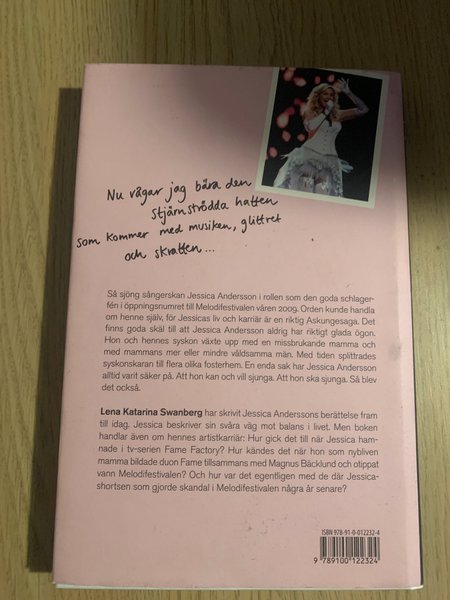 Nu vågar jag bära den
stjärnströdda hatten
som kommer med musiken, glittret
och skratten...
Så sjöng sångerskan Jessica Andersson i rollen som den goda schlager-
fén i öppningsnumret till Melodifestivalen våren 2009. Orden kunde handla
om henne själv, för Jessicas liv och karriär är en riktig Askungesaga. Det
finns goda skäl till att Jessica Andersson aldrig har riktigt glada ögon.
Hon och hennes syskon växte upp med en missbrukande mamma och
med mammans mer eller mindre våldsamma män. Med tiden splittrades
syskonskaran till flera olika fosterhem. En enda sak har Jessica Andersson
alltid varit säker på. Att hon kan och vill sjunga. Att hon ska sjunga. Så blev
det också.
Lena Katarina Swanberg har skrivit Jessica Anderssons berättelse fram
till idag. Jessica beskriver sin svåra väg mot balans i livet. Men boken
handlar även om hennes artistkarriär: Hur gick det till när Jessica ham-
nade i tv-serien Fame Factory? Hur kändes det när hon som nybliven
mamma bildade duon Fame tillsammans med Magnus Bäcklund och otippat
vann Melodifestivalen? Och hur var det egentligen med de där Jessica-
shortsen som gjorde skandal i Melodifestivalen några år senare?
ISBN 978-91-0-012232-4
9 789100 122324